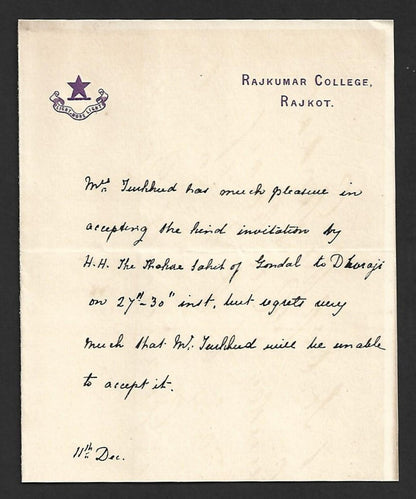 RAJKUMAR COLLEGE,
RAJKOT.
Mrs Turkhud has much pleasure in
accepting the kind invitation by
H.H. The Thakore Saheb of Gondal to Dhoraji
on 27th-30th inst, but regrets very
much that Mr. Turkhud will be unable
to accept it.
11th Dec.